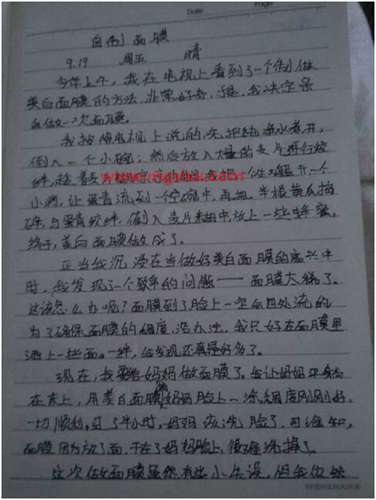 Date Page
自制面膜
9.19 周五 晴
今年上午，我在电视上看到了一个制做
美白面膜的方法，非常好奇，于是，我决定亲
自做一次面膜。
我按照电视上说的，先把纯净水煮开，
倒入一个小碗，然后放入大量的麦片进行搅
拌，接着
小洞，让蛋清流到一个空碗中，再把半根黄瓜捣
碎与蛋清搅拌，倒入麦片糊中放上一些蜂蜜，
终于，美白面膜做成了。
正当我沉浸在当做好美白面膜的高兴中
时，我发现了一个严重的问题——面膜太稀了。
这该怎么办呢？面膜到了脸上一定会四处流的
为了确保面膜的稠度，没办法，我只好在面膜里
洒上一些面。一拌，给发现还真稠好多了。
现在，我要给妈妈做面膜了。我让妈妈平躺
在床上，用美白面膜给妈妈脸上一涂，稠度刚刚好，
一切顺利，过了半小时，妈妈该洗脸了，可谁知，
面膜因为放了面，干在了妈妈脸上，很难洗掉了。
这次做面膜虽然有些小失误，但我仍然